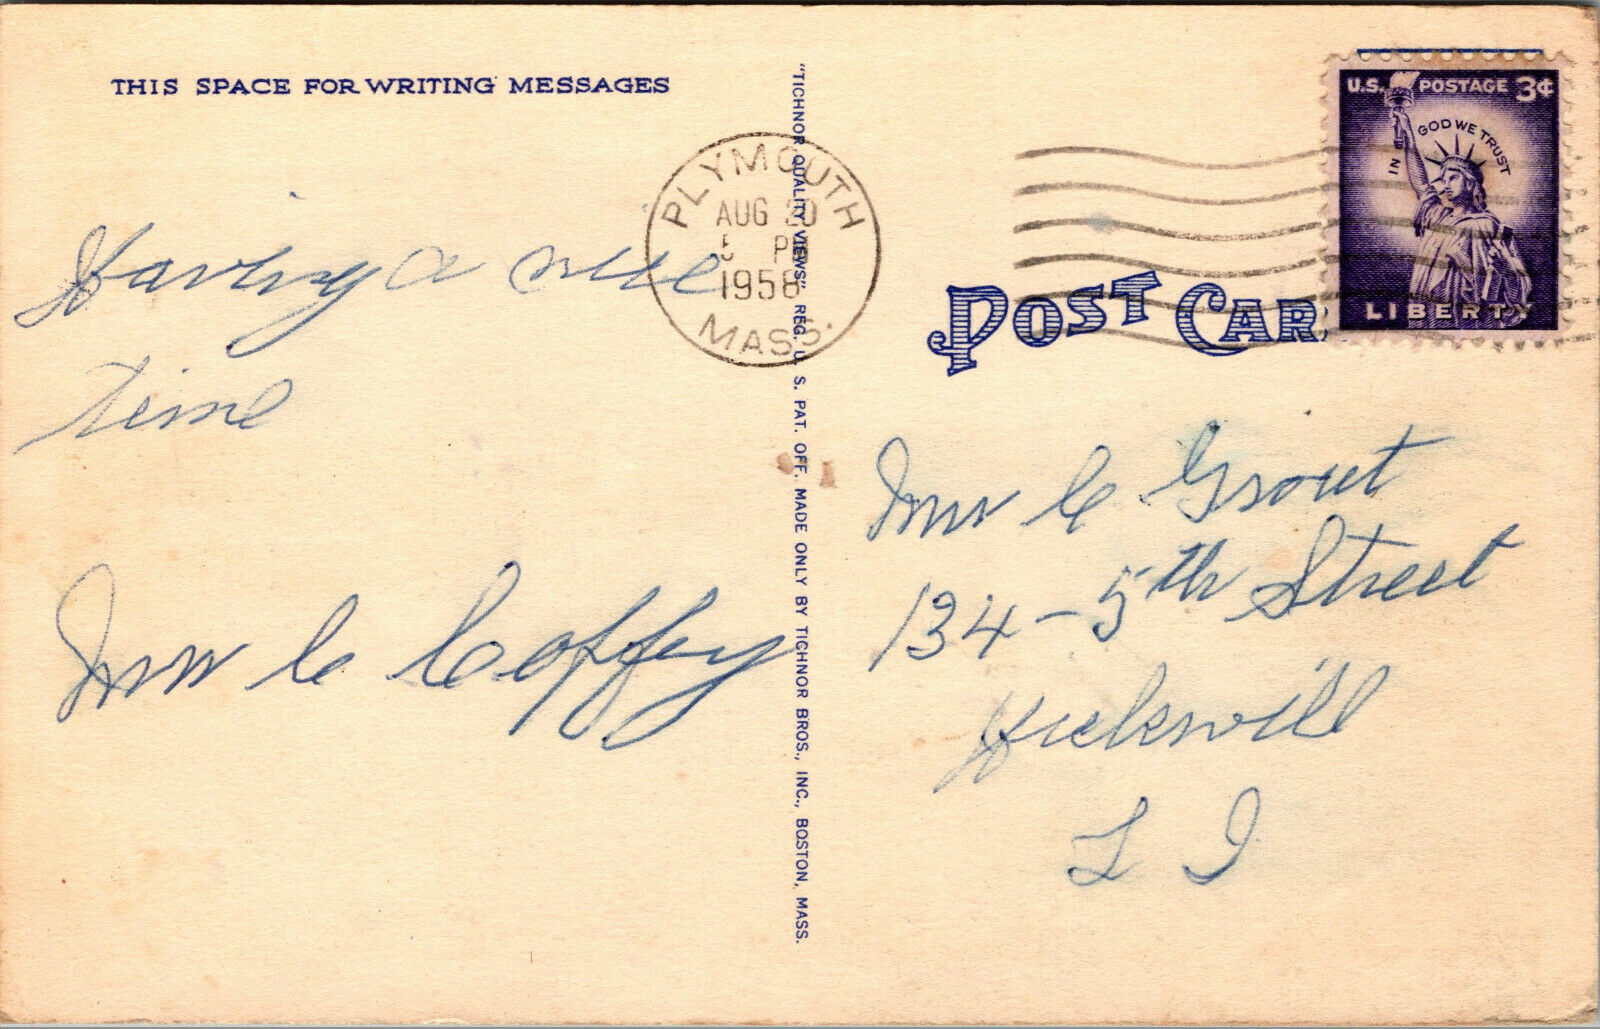 THIS SPACE FOR WRITING MESSAGES
Having a nice
time
Mrs C Coffey
"TICHNOR QUALITY VIEWS," REG. U. S. PAT. OFF. MADE ONLY BY TICHNOR BROS., INC., BOSTON, MASS.
PLYMOUTH
AUG 20
5 PM
1958
MASS.
POST CAR
U.S. POSTAGE 3¢
IN GOD WE TRUST
LIBERTY
Mrs C Grout
134-5th Street
Hicksvill
L I